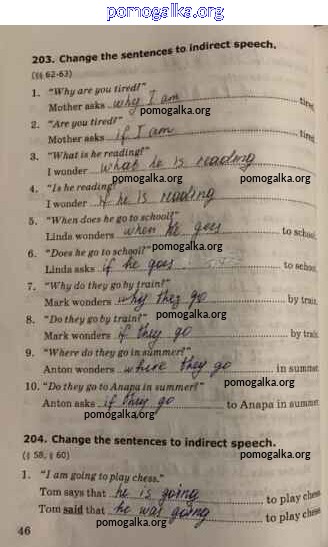 pomogalka.org
203. Change the sentences to indirect speech.
(§§ 62-63)
1. "Why are you tired?"
Mother asks why I am tired.
pomogalka.org
2. "Are you tired?"
Mother asks if I am tired.
pomogalka.org
3. "What is he reading?"
I wonder what he is reading
pomogalka.org
4. "Is he reading?"
I wonder if he is reading
pomogalka.org
5. "When does he go to school?"
Linda wonders when he goes to school.
pomogalka.org
6. "Does he go to school?"
Linda asks if he goes to school.
pomogalka.org
7. "Why do they go by train?"
Mark wonders why they go by train.
pomogalka.org
8. "Do they go by train?"
Mark wonders if they go by train.
pomogalka.org
9. "Where do they go in summer?"
Anton wonders where they go in summer.
pomogalka.org
10. "Do they go to Anapa in summer?"
Anton asks if they go to Anapa in summer.
pomogalka.org
204. Change the sentences to indirect speech.
(§ 58, § 60)
pomogalka.org
1. "I am going to play chess."
Tom says that he is going to play chess
Tom said that he was going to play chess.
pomogalka.org
46